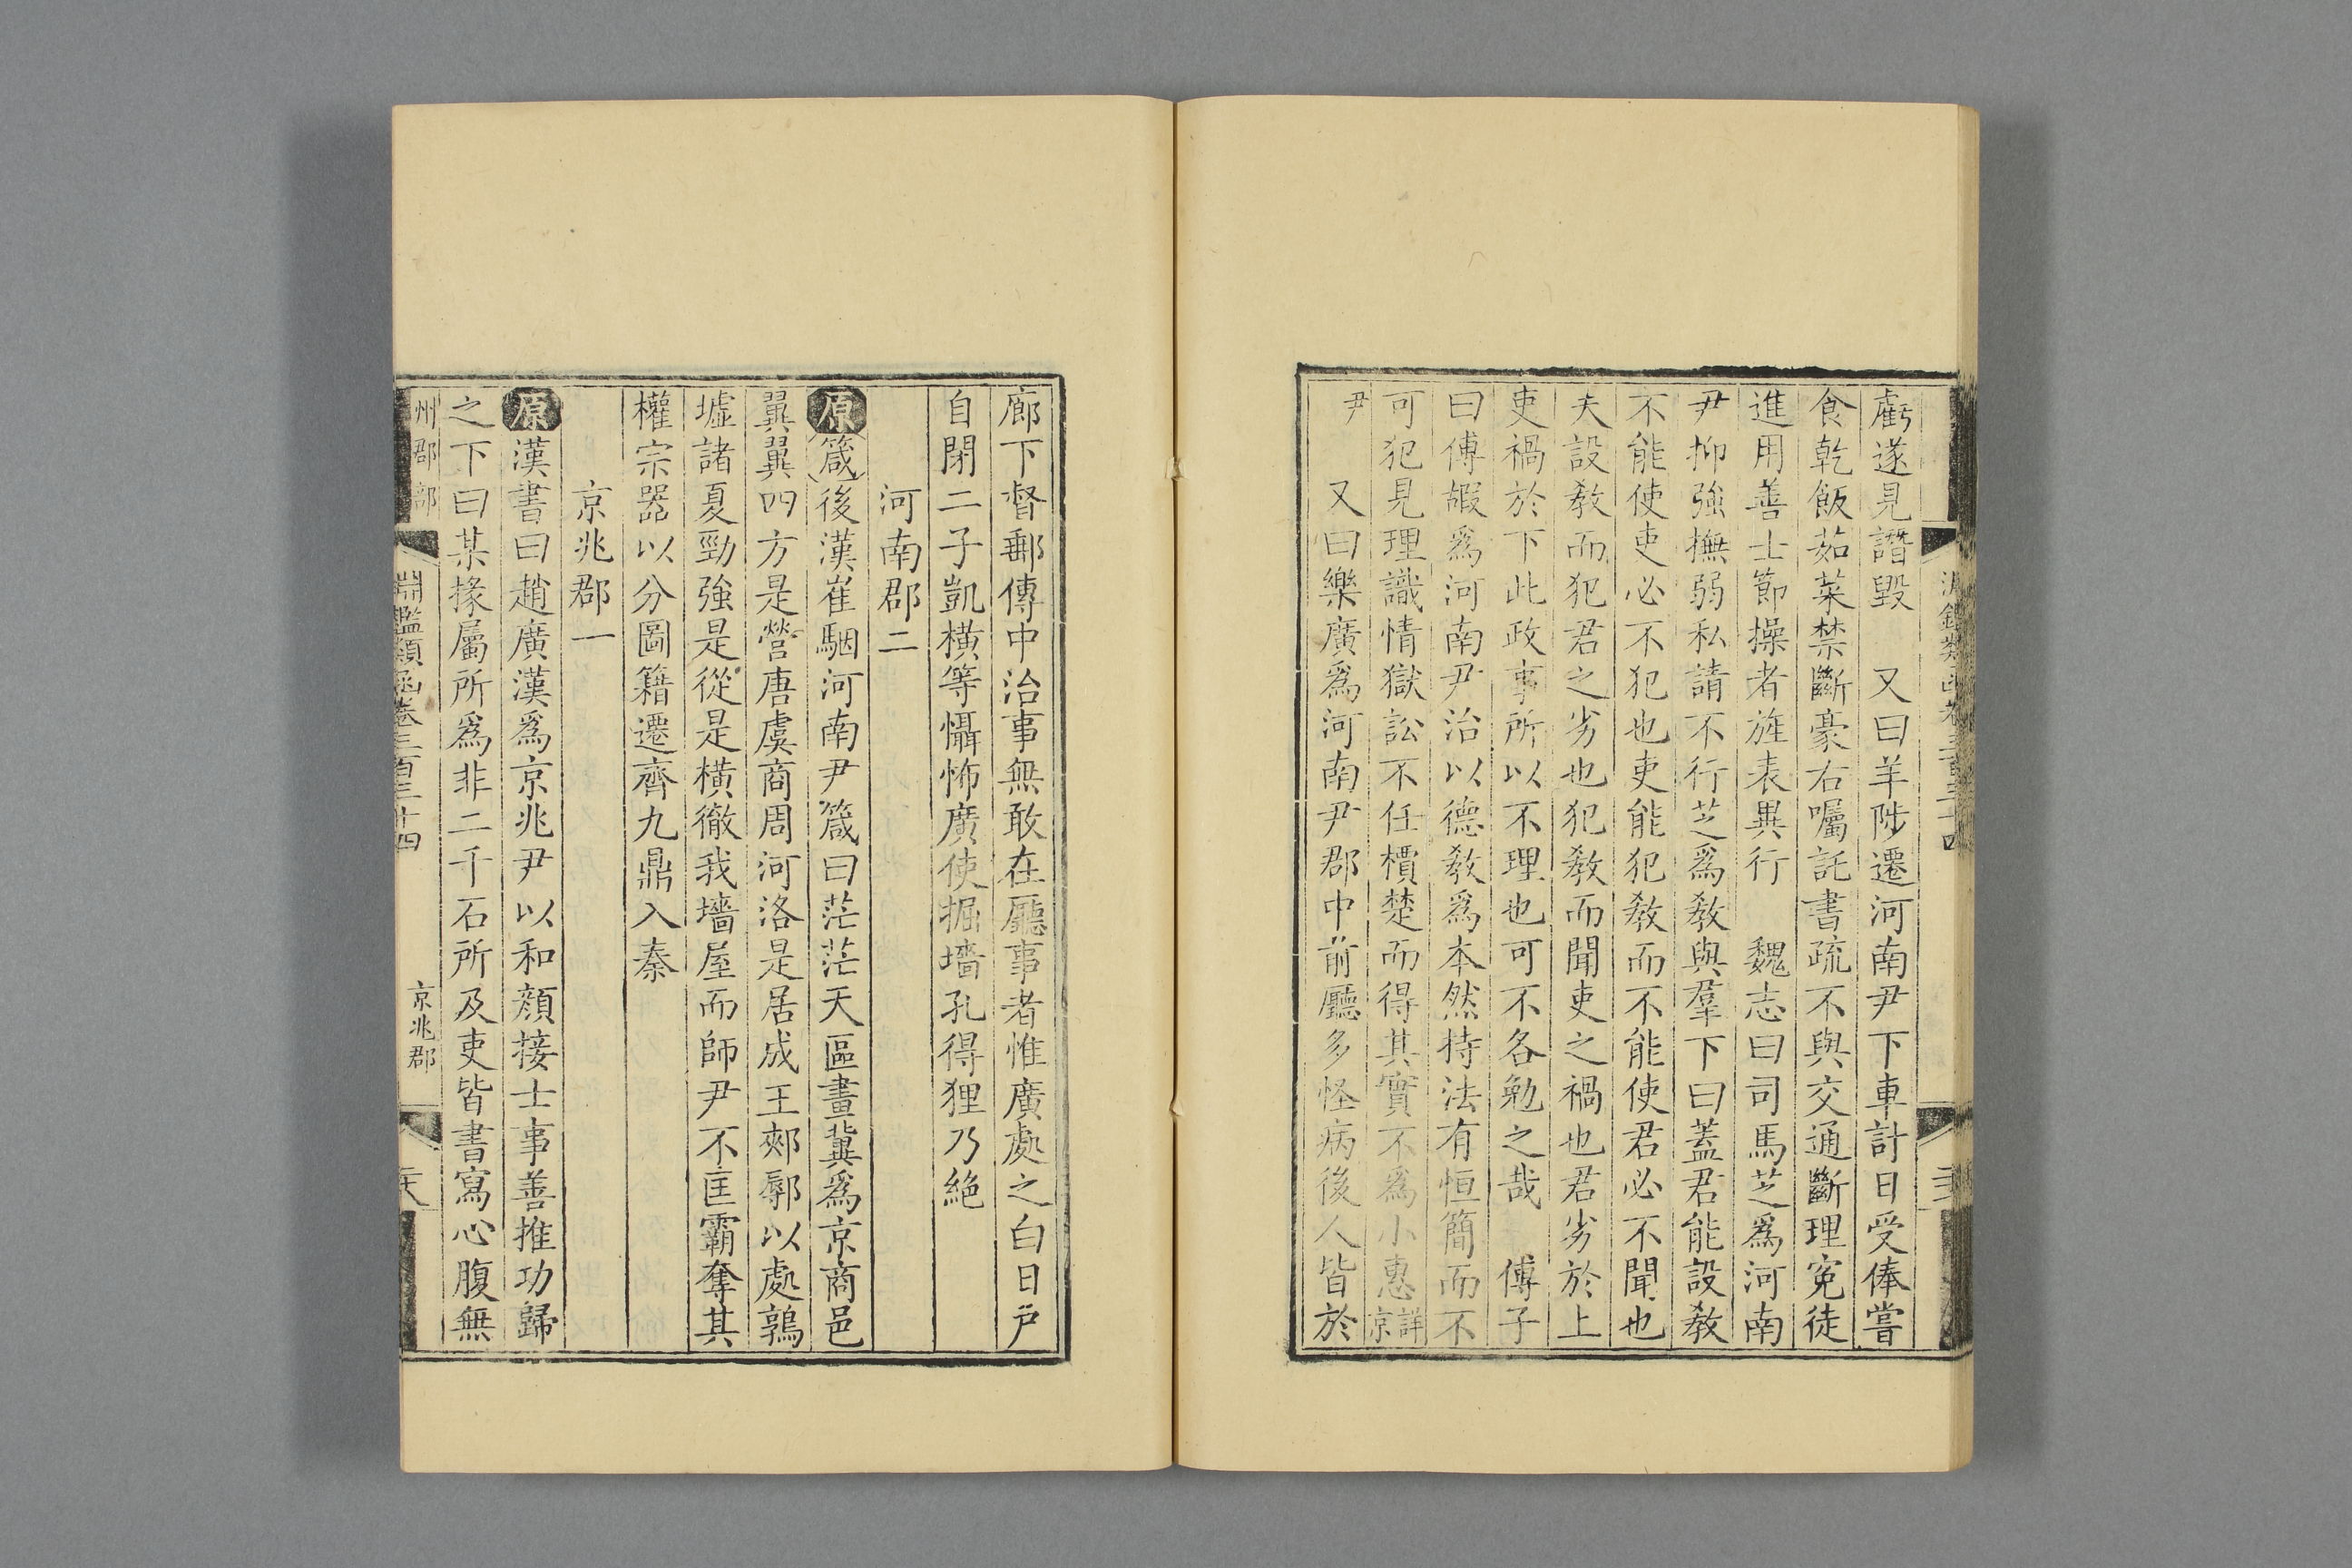 虧遂見譖毀　又曰羊陟遷河南尹下車計日受俸嘗
食乾飯茹菜禁斷豪右囑託書疏不與交通斷理寃徒
進用善士節操者旌表異行　魏志曰司馬芝爲河南
尹抑強撫弱私請不行芝爲敎與羣下曰蓋君能設敎
不能使吏必不犯也吏能犯敎而不能使君必不聞也
夫設敎而犯君之劣也犯敎而聞吏之禍也君劣於上
吏禍於下此政事所以不理也可不各勉之哉　傅子
曰傅嘏爲河南尹治以德敎爲本然持法有恒簡而不
可犯見理識情獄訟不任檟楚而得其實不爲小惠詳京
尹　又曰樂廣爲河南尹郡中前廳多怪病後人皆於
廊下督郵傳中治事無敢在廳事者惟廣處之白日戶
自閉二子凱橫等懾怖廣使掘墻孔得狸乃絶
河南郡二
原箴後漢崔駰河南尹箴曰茫茫天區畫冀爲京商邑
翼翼四方是營唐虞商周河洛是居成王郟鄏以處鶉
墟諸夏勁強是從是橫徹我墻屋而師尹不匡霸奪其
權宗器以分圖籍遷齊九鼎入秦
京兆郡一
原漢書曰趙廣漢爲京兆尹以和顔接士事善推功歸
之下曰某掾屬所爲非二千石所及吏皆書寫心腹無
州郡部
淵鑑類函卷三百三十四
京兆郡